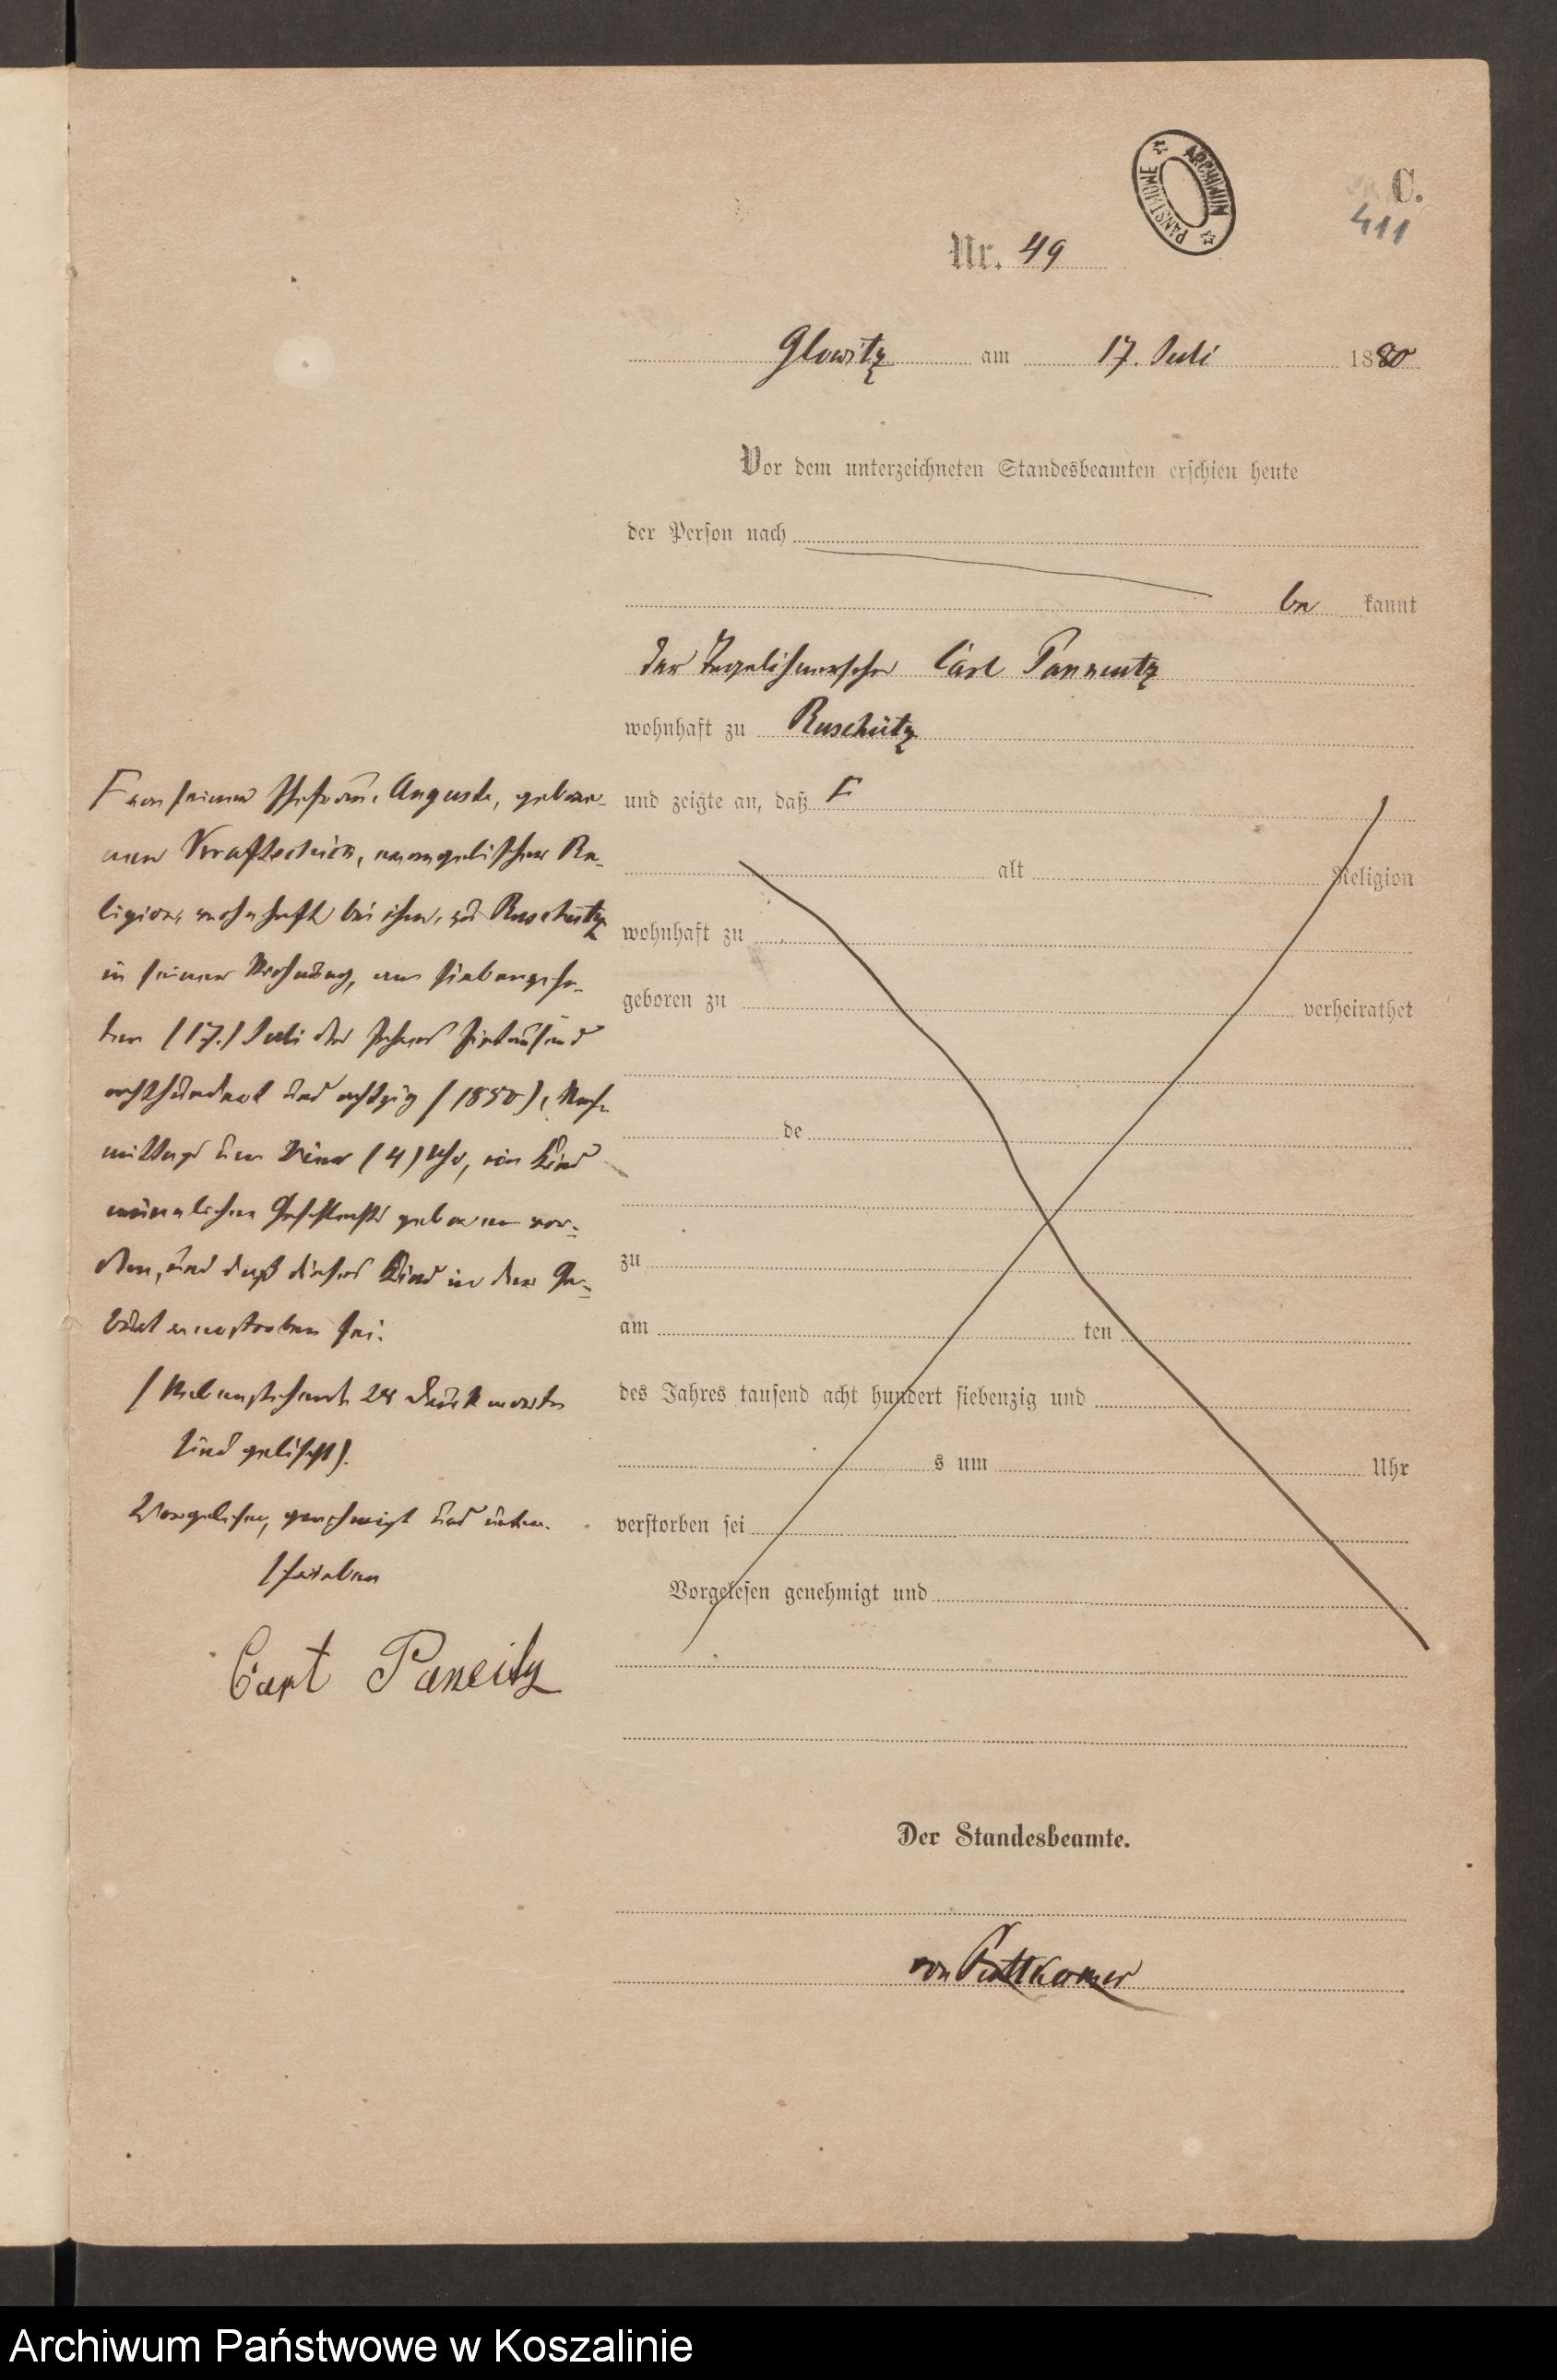 C.
411
ARCHIWUM PAŃSTWOWE
Nr. 49
Glowitz am 17. Juli 1880
Vor dem unterzeichneten Standesbeamten erschien heute
der Person nach
be kannt
der Carl Panneutz
wohnhaft zu Ruschütz
und zeigte an, daß F
alt Religion
wohnhaft zu
geboren zu verheirathet
de
zu
am ten
des Jahres tausend acht hundert siebenzig und
s um Uhr
verstorben sei
Vorgelesen genehmigt und
F von seiner Ehefrau, Auguste, gebore-
nen evangelischer Re-
ligion, wohnhaft bei ihm, zu Ruschütz
in seiner Wohnung, am siebenzehn-
ten (17.) Juli des Jahres Eintausend
achthundert und achtzig (1880), Nach-
mittags um Vier (4) Uhr, ein Kind
männlichen Geschlechts geboren wor-
den, und daß dieses Kind in der Ge-
burt verstorben sei.
(Nebenstehende 24 Druckworte
sind gelöscht).
Vorgelesen, genehmigt und unter-
schrieben
Carl Paneitz
Der Standesbeamte.
von Puttkamer
Archiwum Państwowe w Koszalinie